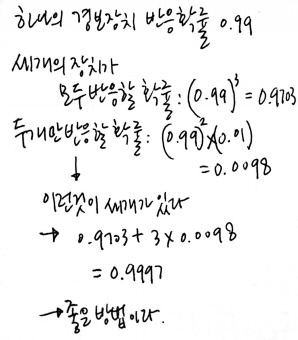 하나의 경보장치 반응확률 0.99
세개의 장치가
모두 반응할 확률: (0.99)³ = 0.9703
두개만 반응할 확률: (0.99)²×(0.01)
= 0.0098
↓
이런것이 세개가 있다
→ 0.9703 + 3 × 0.0098
= 0.9997
→ 좋은 방법이다.